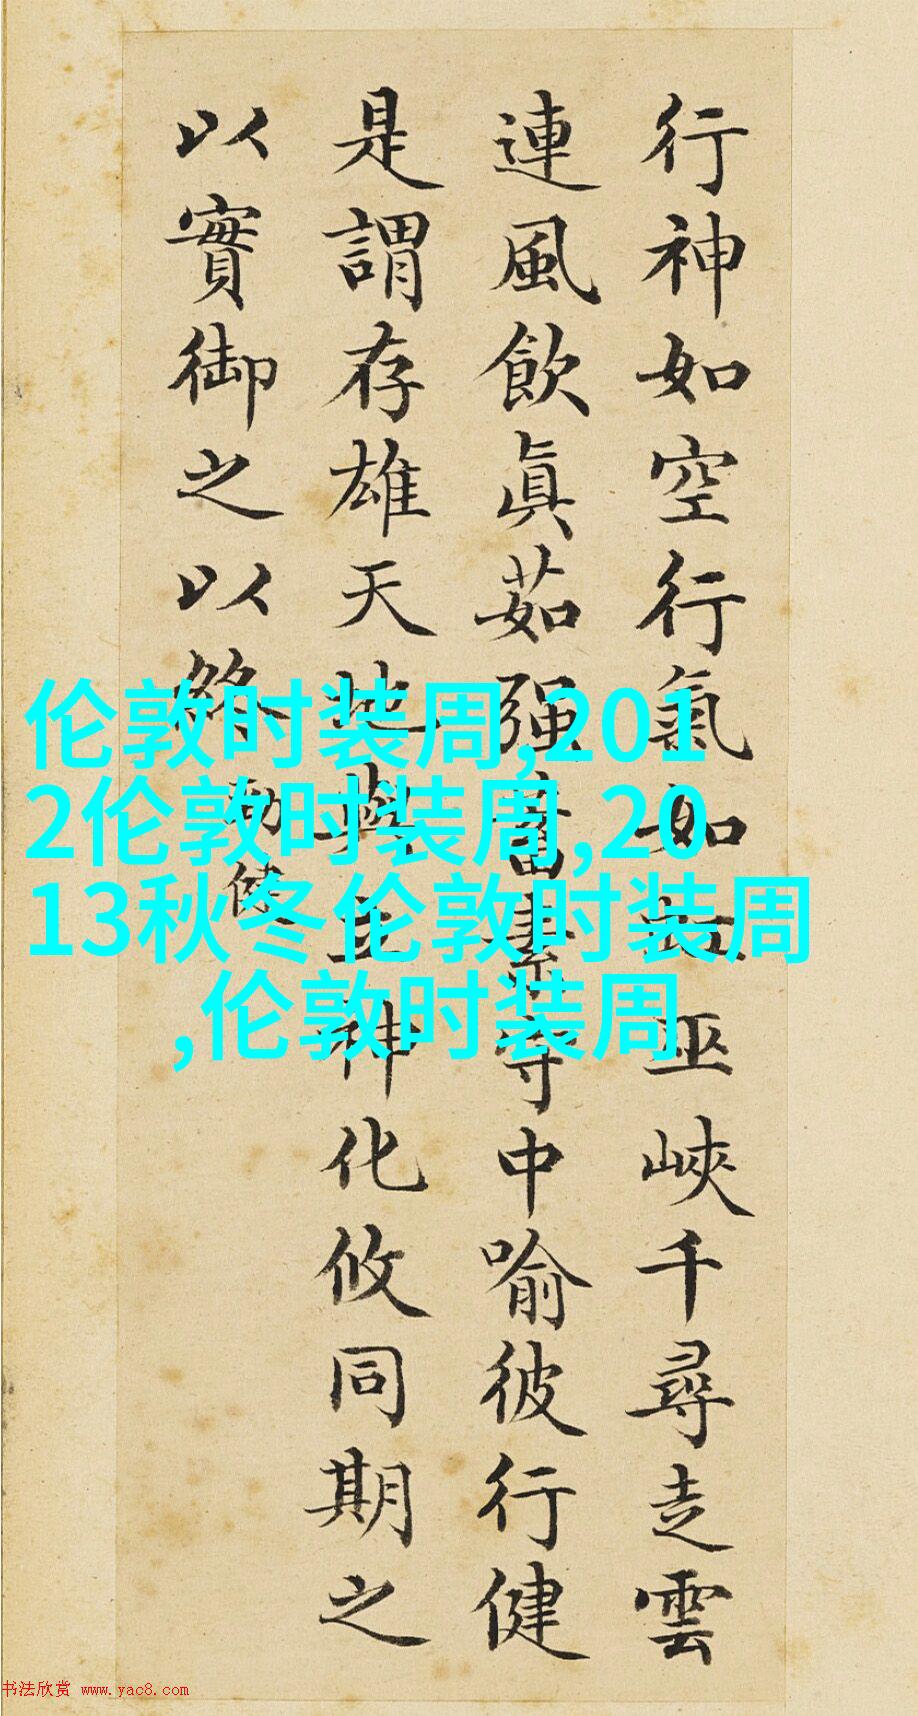 行神如空行氣如虹巫峽千尋走雲
連風飲眞茹强蓄素守中喻彼行健
是謂存雄天地與立神化攸同期之
以實御之以終
勁健
伦敦时装周,201
2伦敦时装周,20
13秋冬伦敦时装周
,伦敦时装周
书法欣赏 www.yac8.com